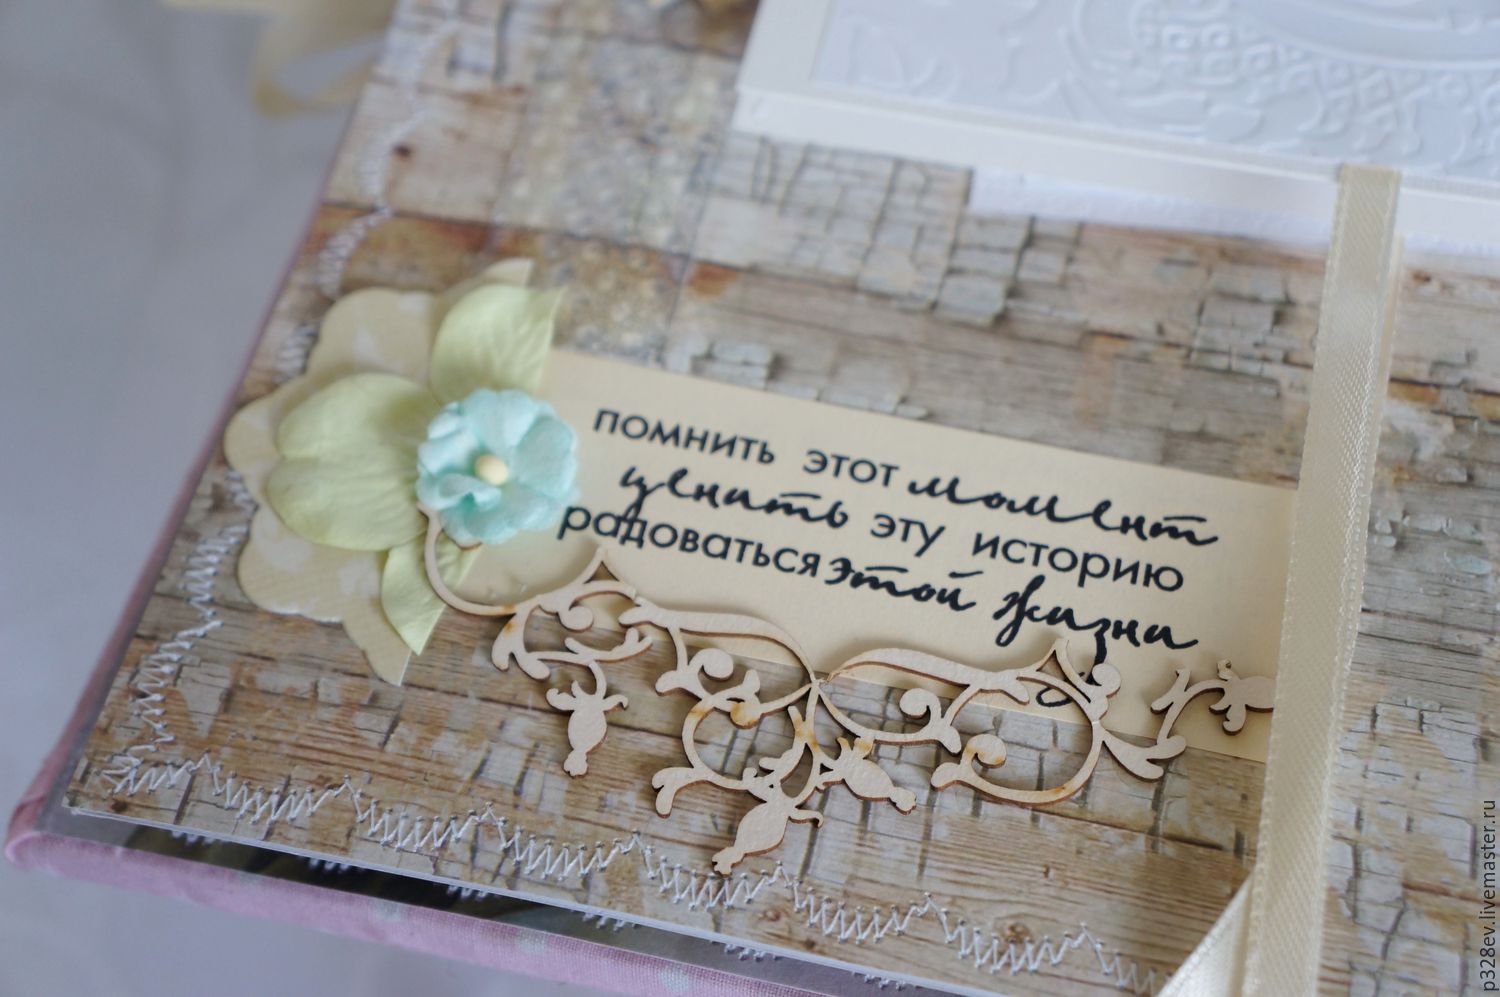 помнить этот момент
ценить эту историю
радоваться этой жизни
p328ev.livemaster.ru